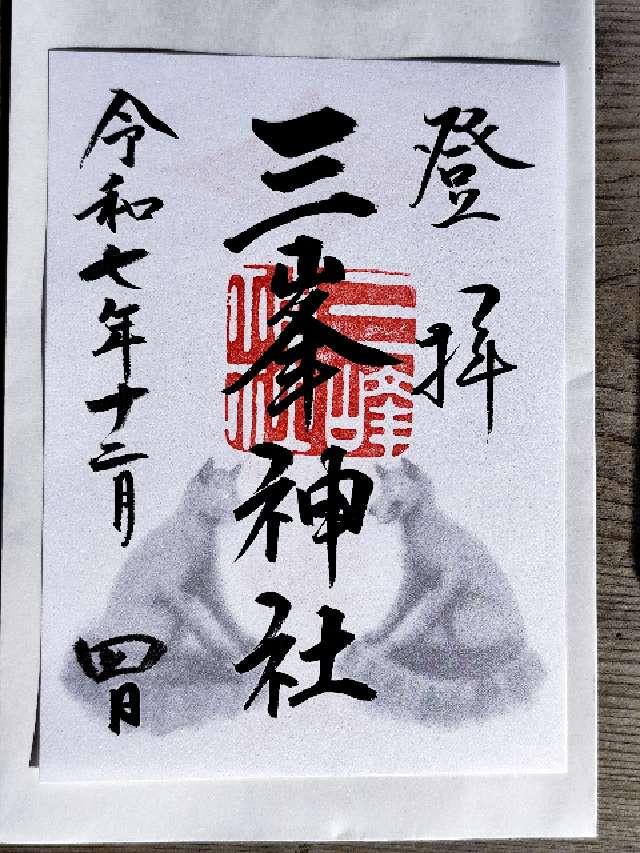 登拝
三峯神社
令和七年十二月四日